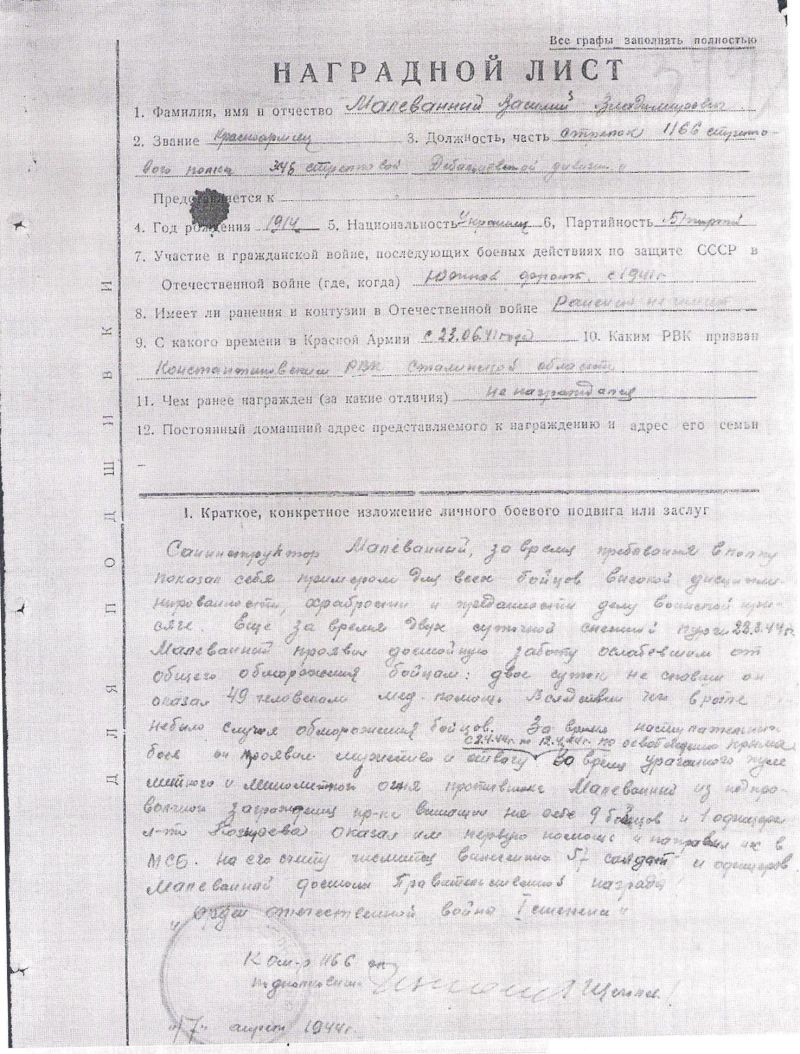 Все графы заполнять полностью
НАГРАДНОЙ ЛИСТ
1. Фамилия, имя и отчество Малеванний Василий Владимирович
2. Звание Красноармеец 3. Должность, часть стрелок 1166 стрелко-
вого полка 346 стрелковой Дебальцевской дивизии
Представляется к
4. Год рождения 1914 5, Национальность Украинец 6, Партийность Б/партий
7. Участие в гражданской войне, последующих боевых действиях по защите СССР в
Отечественной войне (где, когда) с 1941г
8. Имеет ли ранения и контузии в Отечественной войне Ранений не имеет
9. С какого времени в Красной Армии с 23.06.41 года 10. Каким РВК призван
Константиновским РВК Сталинской области
11. Чем ранее награжден (за какие отличия) не награждался
12. Постоянный домашний адрес представляемого к награждению и адрес его семьи
–
ДЛЯ ПОДШИВКИ
I. Краткое, конкретное изложение личного боевого подвига или заслуг
Санинструктор Малеванний, за время пребывания в полку
показал себя примером для всех бойцов высокой дисципли-
нированности, храбрости и преданности делу воинской при-
сяге. Еще за время двух суточной снежной пурги 28.3.44г.
Малеванний проявил достойную заботу ослабевшим от
общего обморожения бойцам: двое суток не спавши он
оказал 49 человекам мед. помощь Вследствии чего в роте
небыло случая обморожения бойцов. За время наступательных
боев он проявил мужество и отвагу с 2.4.44г. по 12.4.44г. по освобождению Крыма
За время ураганного пуле
метного и минометного огня противника Малеванний из под про-
волочного заграждения пр-ка вытащил на себе 9 бойцов и 1 офицера
л-та оказал им первую помощь и направил их в
МСБ. на его счету числится вынесенно 57 солдат и офицеров
Малеванний достоин Правительственной награды
"Орден отечественной война I степени"
Ком-р 1166 сп
подполковник
"17" апреля 1944г.